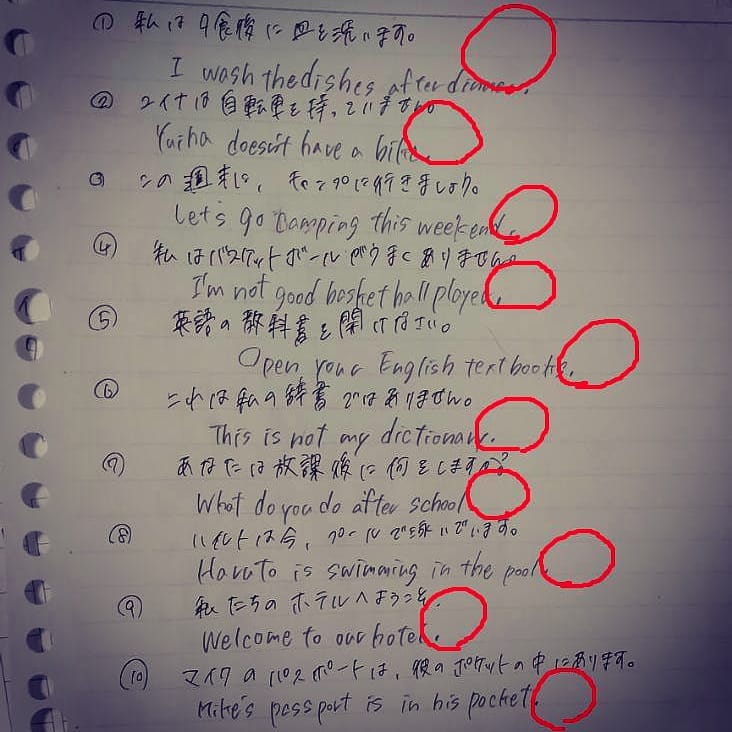 ① 私は夕食後に皿を洗います。
I wash the dishes after dinner.
② ユイナは自転車を持っていません。
Yuina doesn't have a bike.
③ この週末に、キャンプに行きましょう。
Let's go camping this weekend.
④ 私はバスケットボールがうまくありません。
I'm not good basketball player.
⑤ 英語の教科書を開けなさい。
Open your English textbooks.
⑥ これは私の辞書ではありません。
This is not my dictionary.
⑦ あなたは放課後に何をしますか?
What do you do after school
⑧ ハルトは今、プールで泳いでいます。
Haruto is swimming in the pool.
⑨ 私たちのホテルへようこそ.
Welcome to our hotel.
⑩ マイクのパスポートは、彼のポケットの中にあります。
Mike's passport is in his pocket.